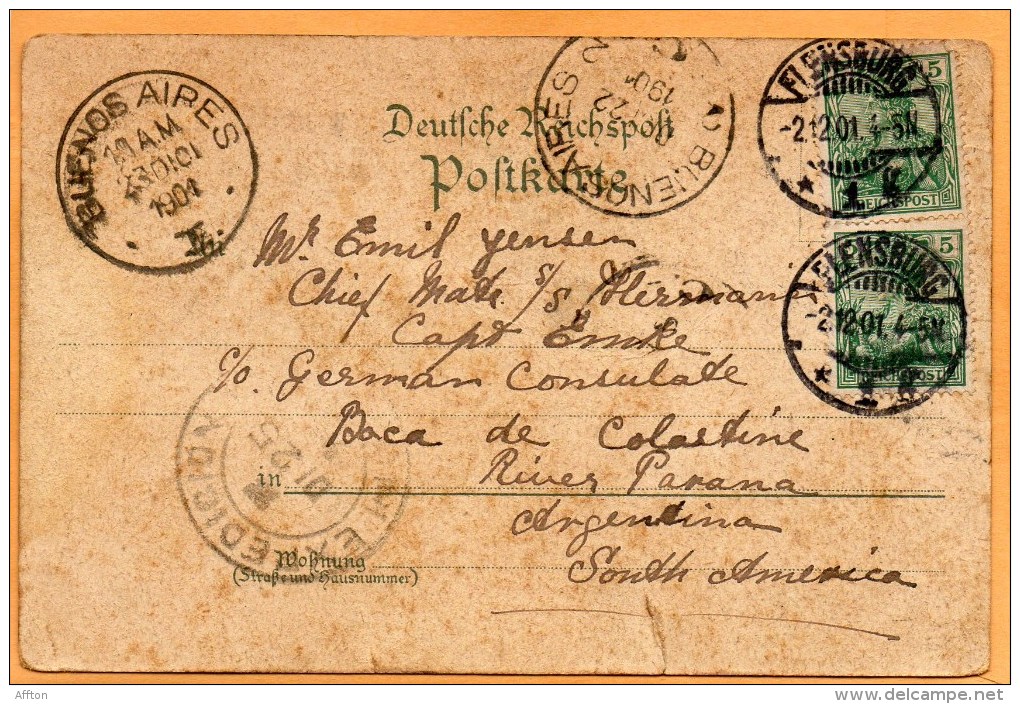 BUENOS AIRES
11 A.M
23 DI 01
1901
BUENOS AIRES
22
190
FLENSBURG
-2.12.01. 4-5N
* 1 k
5
REICHSPOST
FLENSBURG
-2.12.01. 4-5N
* 1
5
REICHSPOST
Deutsche Reichspost
Postkarte
Mr Emil Jensen
Chief Mate S/S, Herrmann
Capt Emke
c/o German Consulate
Boca de Colastine
in River Parana
Argentina
South America
Wohnung
(Straße und Hausnummer)
EDICION
25
01
Affton
www.delcampe.net